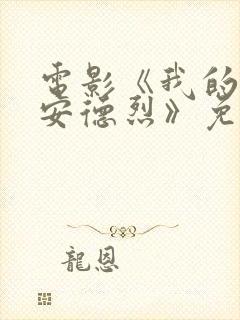 電影《我的
安德烈》免
龍恩